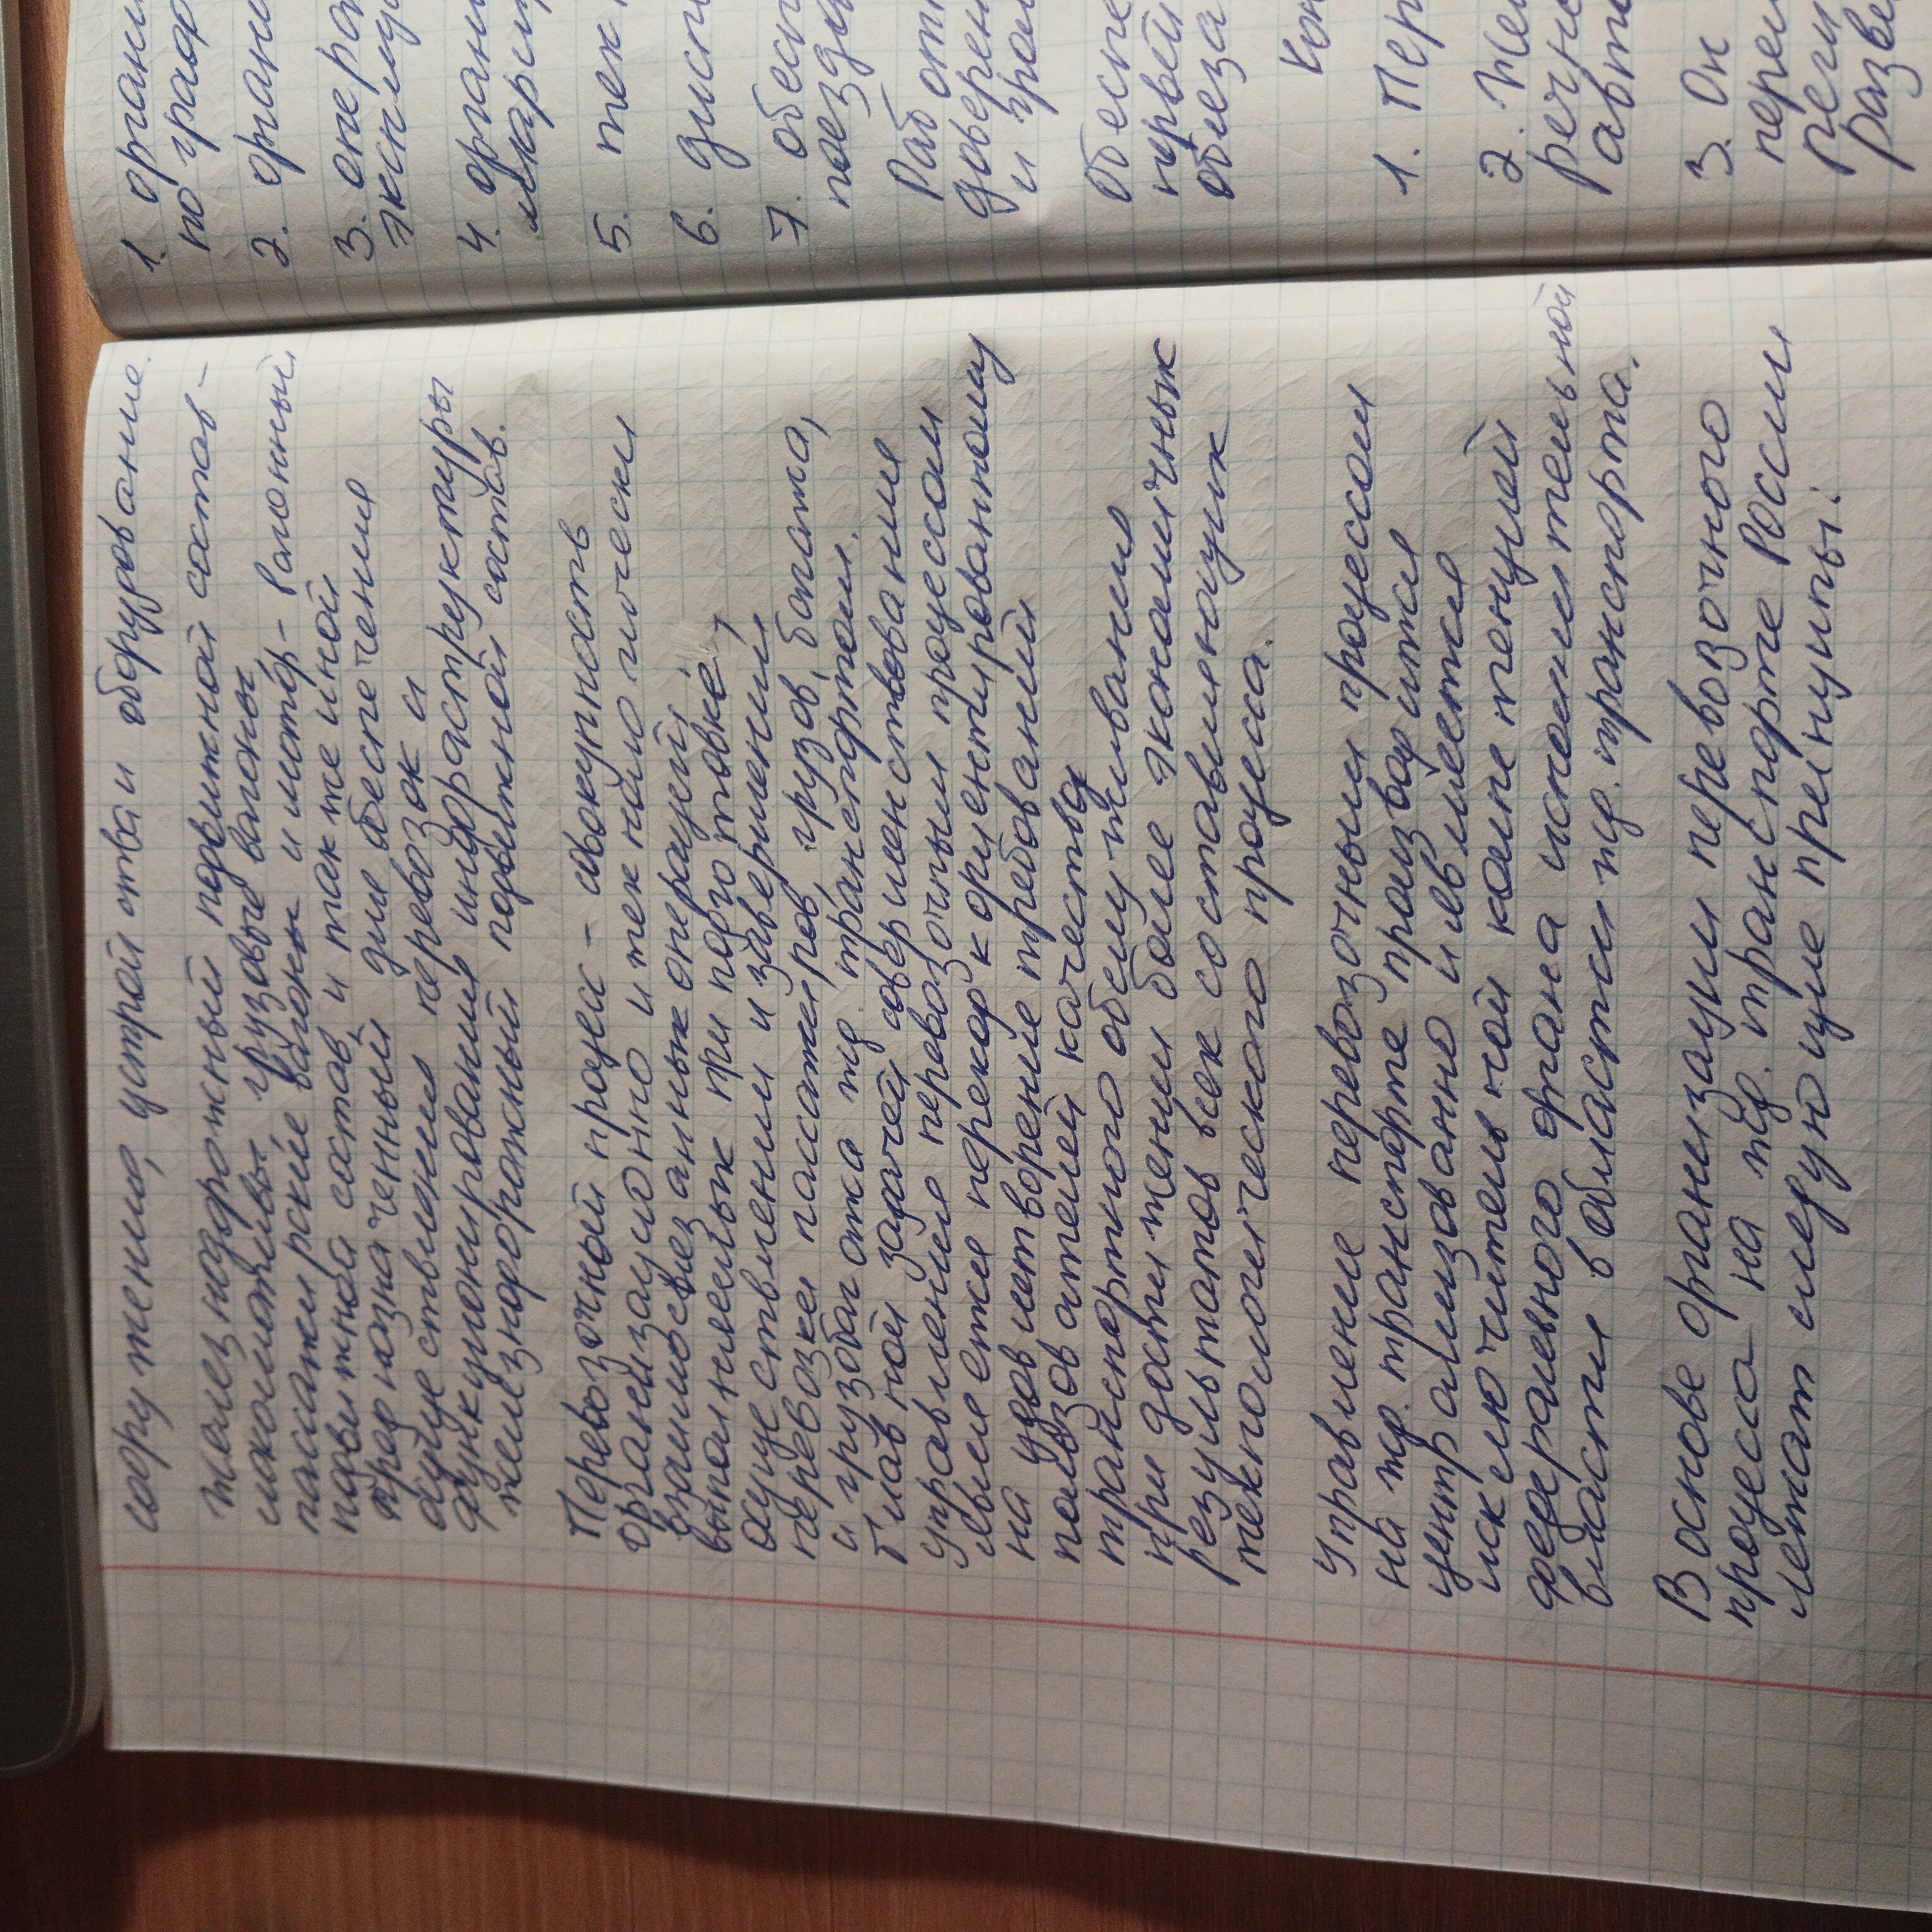 сооружения, устройства и оборудование.
Железнодорожный подвижной состав -
локомотивы грузовые вагоны
пассажирские вагоны и мотор- вагонный
подвижной состав и также иной
предназначенный для обеспечения
осуществления перевозок и
функционирования инфраструктуры
железнодорожный подвижной состав.
Перевозочный процесс - совокупность
организационно и технологически
взаимосвязанных операций,
выполняемых при подготовке,
осуществлении и завершении
перевозки пассажиров, грузов, багажа,
и грузобагажа жд. транспортом.
Главной задачей совершенствование
управление перевозочным процессом
является переход к ориентированному
на удовлетворение требований
пользователей качество
транспортного обслуживания
при достижении более экономичных
результатов всех составляющих
технологического процесса.
Управление перевозочным процессом
на жд. транспорте производится
централизованно и является
исключительной компетенцией
федерального органа исполнительной
власти в области жд. транспорта.
В основе организации перевозочного
процесса на жд. транспорте России
лежат следующие принципы:
1. органи
по граф
2. органи
3. опера
эксплуа
4. органи
маршру
5. тех
6. дисп
7. обесп
поезд
Работ
доверен
и гром
Обеспе
перевоз
обяза
Кон
1. Пер
2. Жел
речн
авто
3. Он
перев
реги
разве